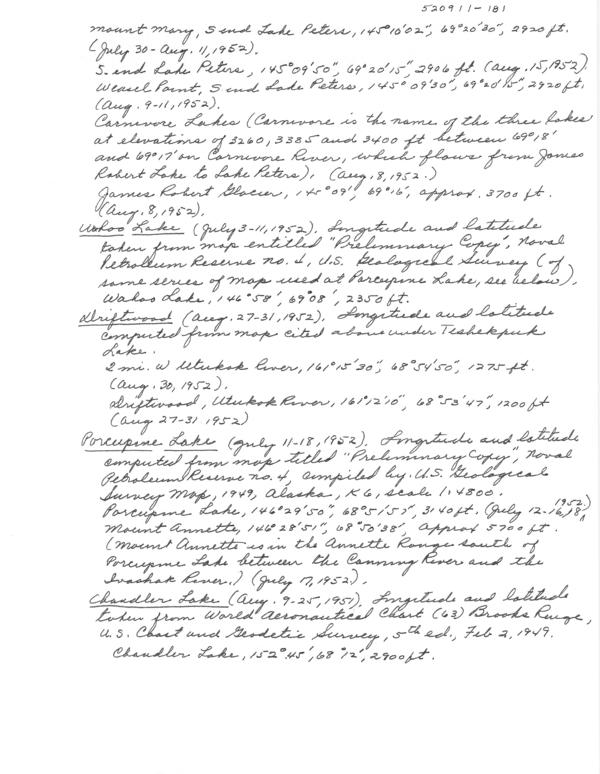 520911-181
Mount Mary, S end Lake Peters, 145°10'02", 69°20'30", 2920 ft.
(July 30-Aug. 11, 1952).
S. end Lake Peters, 145°09'50", 69°20'15", 2906 ft. (Aug. 15, 1952).
Weasel Point, S end Lake Peters, 145°09'30", 69°20'15", 2920 ft.
(Aug. 9-11, 1952).
Carnivore Lakes (Carnivore is the name of the three lakes
at elevations of 3260, 3385 and 3400 ft between 69°18'
and 69°17' on Carnivore River, which flows from James
Robert Lake to Lake Peters), (Aug. 8, 1952.)
James Robert Glacier, 145°09', 69°16', approx. 3700 ft.
(Aug. 8, 1952).
Wahoo Lake (July 3-11, 1952). Longitude and latitude
taken from map entitled "Preliminary Copy", Naval
Petroleum Reserve no. 4, U.S. Geological Survey (of
same series of map used at Porcupine Lake, see below).
Wahoo Lake, 146°58', 69°08', 2350 ft.
Driftwood (Aug. 27-31, 1952). Longitude and latitude
computed from map cited above under Teshekpuk
Lake.
2 mi. W Utukok River, 161°15'30", 68°54'50", 1275 ft.
(Aug. 30, 1952).
Driftwood, Utukok River, 161°12'10", 68°53'47", 1200 ft
(Aug 27-31 1952)
Porcupine Lake (July 11-18, 1952). Longitude and latitude
computed from map titled "Preliminary Copy", Naval
Petroleum Reserve no. 4, compiled by U.S. Geological
Survey Map, 1949, Alaska, K6, scale 1:4800.
Porcupine Lake, 146°29'50", 68°51'57", 3140 ft. (July 12-16, 18, 1952.)
Mount Annette, 146°28'51", 68°50'38", approx 5700 ft.
(Mount Annette is in the Annette Range south of
Porcupine Lake between the Canning River and the
Ivashak River.) (July 17, 1952).
Chandler Lake (Aug. 9-25, 1951). Longitude and latitude
taken from World Aeronautical Chart (63) Brooks Range,
U.S. Coast and Geodetic Survey, 5th ed., Feb 2, 1949.
Chandler Lake, 152°45', 68°12', 2900 ft.